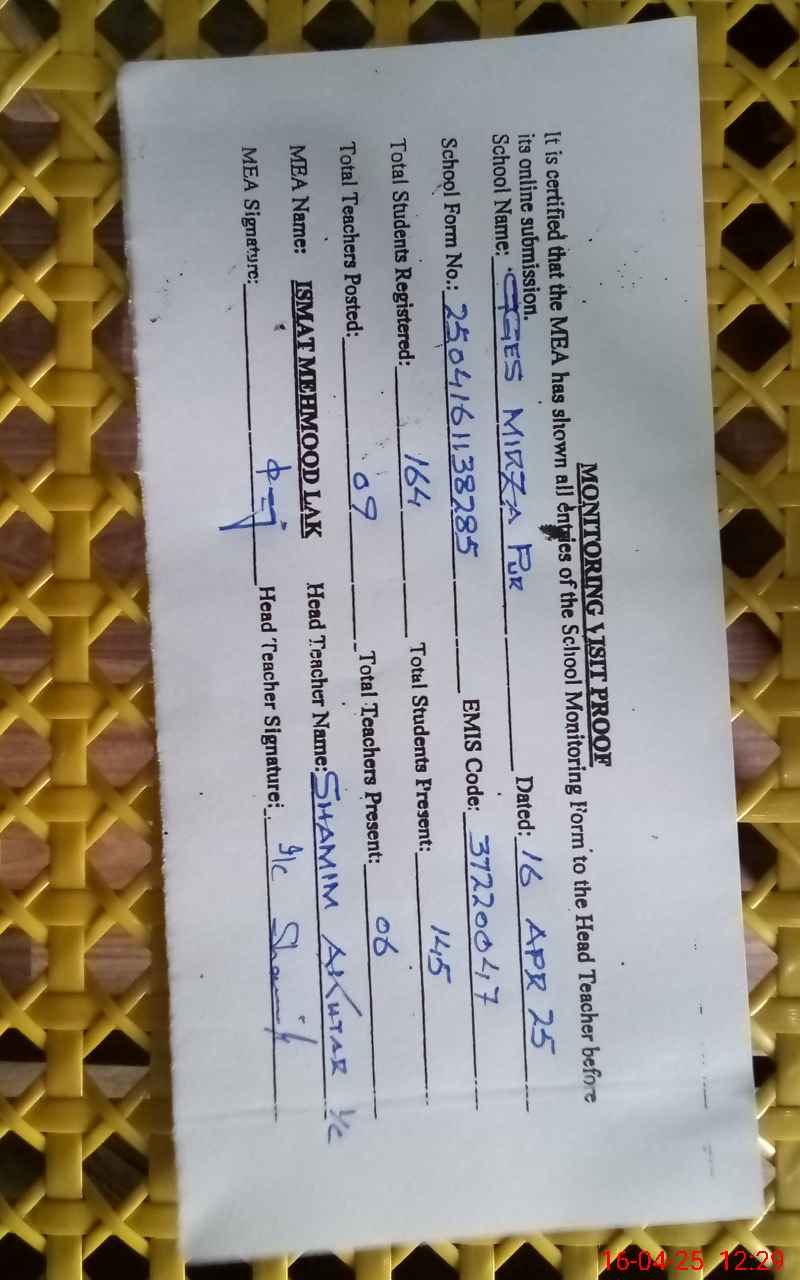 MONITORING VISIT PROOF
It is certified that the MEA has shown all entries of the School Monitoring Form to the Head Teacher before
its online submission.
School Name: GGES MIRZA PUR Dated: 16 APR 25
School Form No.: 2504161138285 EMIS Code: 37220047
Total Students Registered: 164 Total Students Present: 145
Total Teachers Posted: 09 Total Teachers Present: 06
MEA Name: ISMAT MEHMOOD LAK Head Teacher Name: SHAMIM AKHTAR I/C
MEA Signature: Head Teacher Signature: I/c
16-04-25 12:29